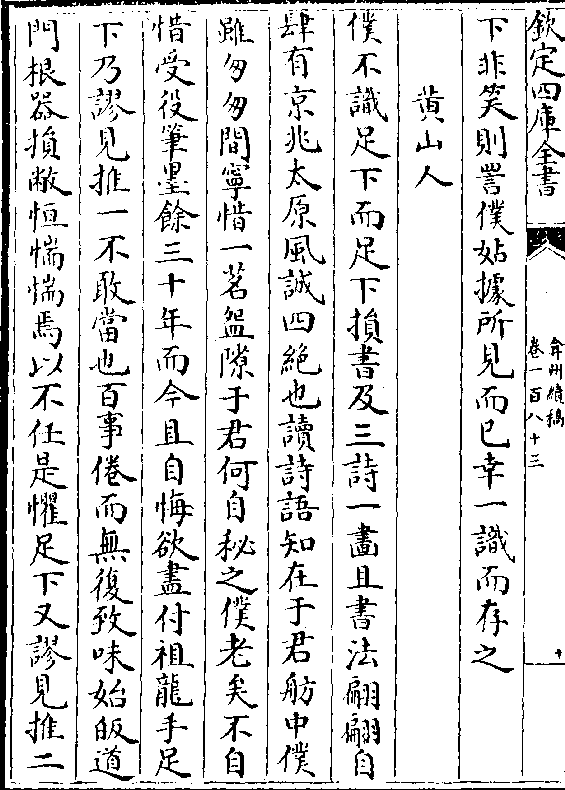 欽定四庫全書
弇州續稿
卷一百八十三
十
下非笑則詈僕姑據所見而已幸一識而存之
黄山人
僕不識足下而足下損書及三詩一畵且書法翩翩自
肆有京兆太原風誠四絶也讀詩語知在于君舫中僕
雖匆匆間寧惜一茗盌隙于君何自秘之僕老矣不自
惜受役筆墨餘三十年而今且自悔欲盡付祖龍手足
下乃謬見推一不敢當也百事倦而無復致味始皈道
門根器損敝恒惴惴焉以不任是懼足下又謬見推二